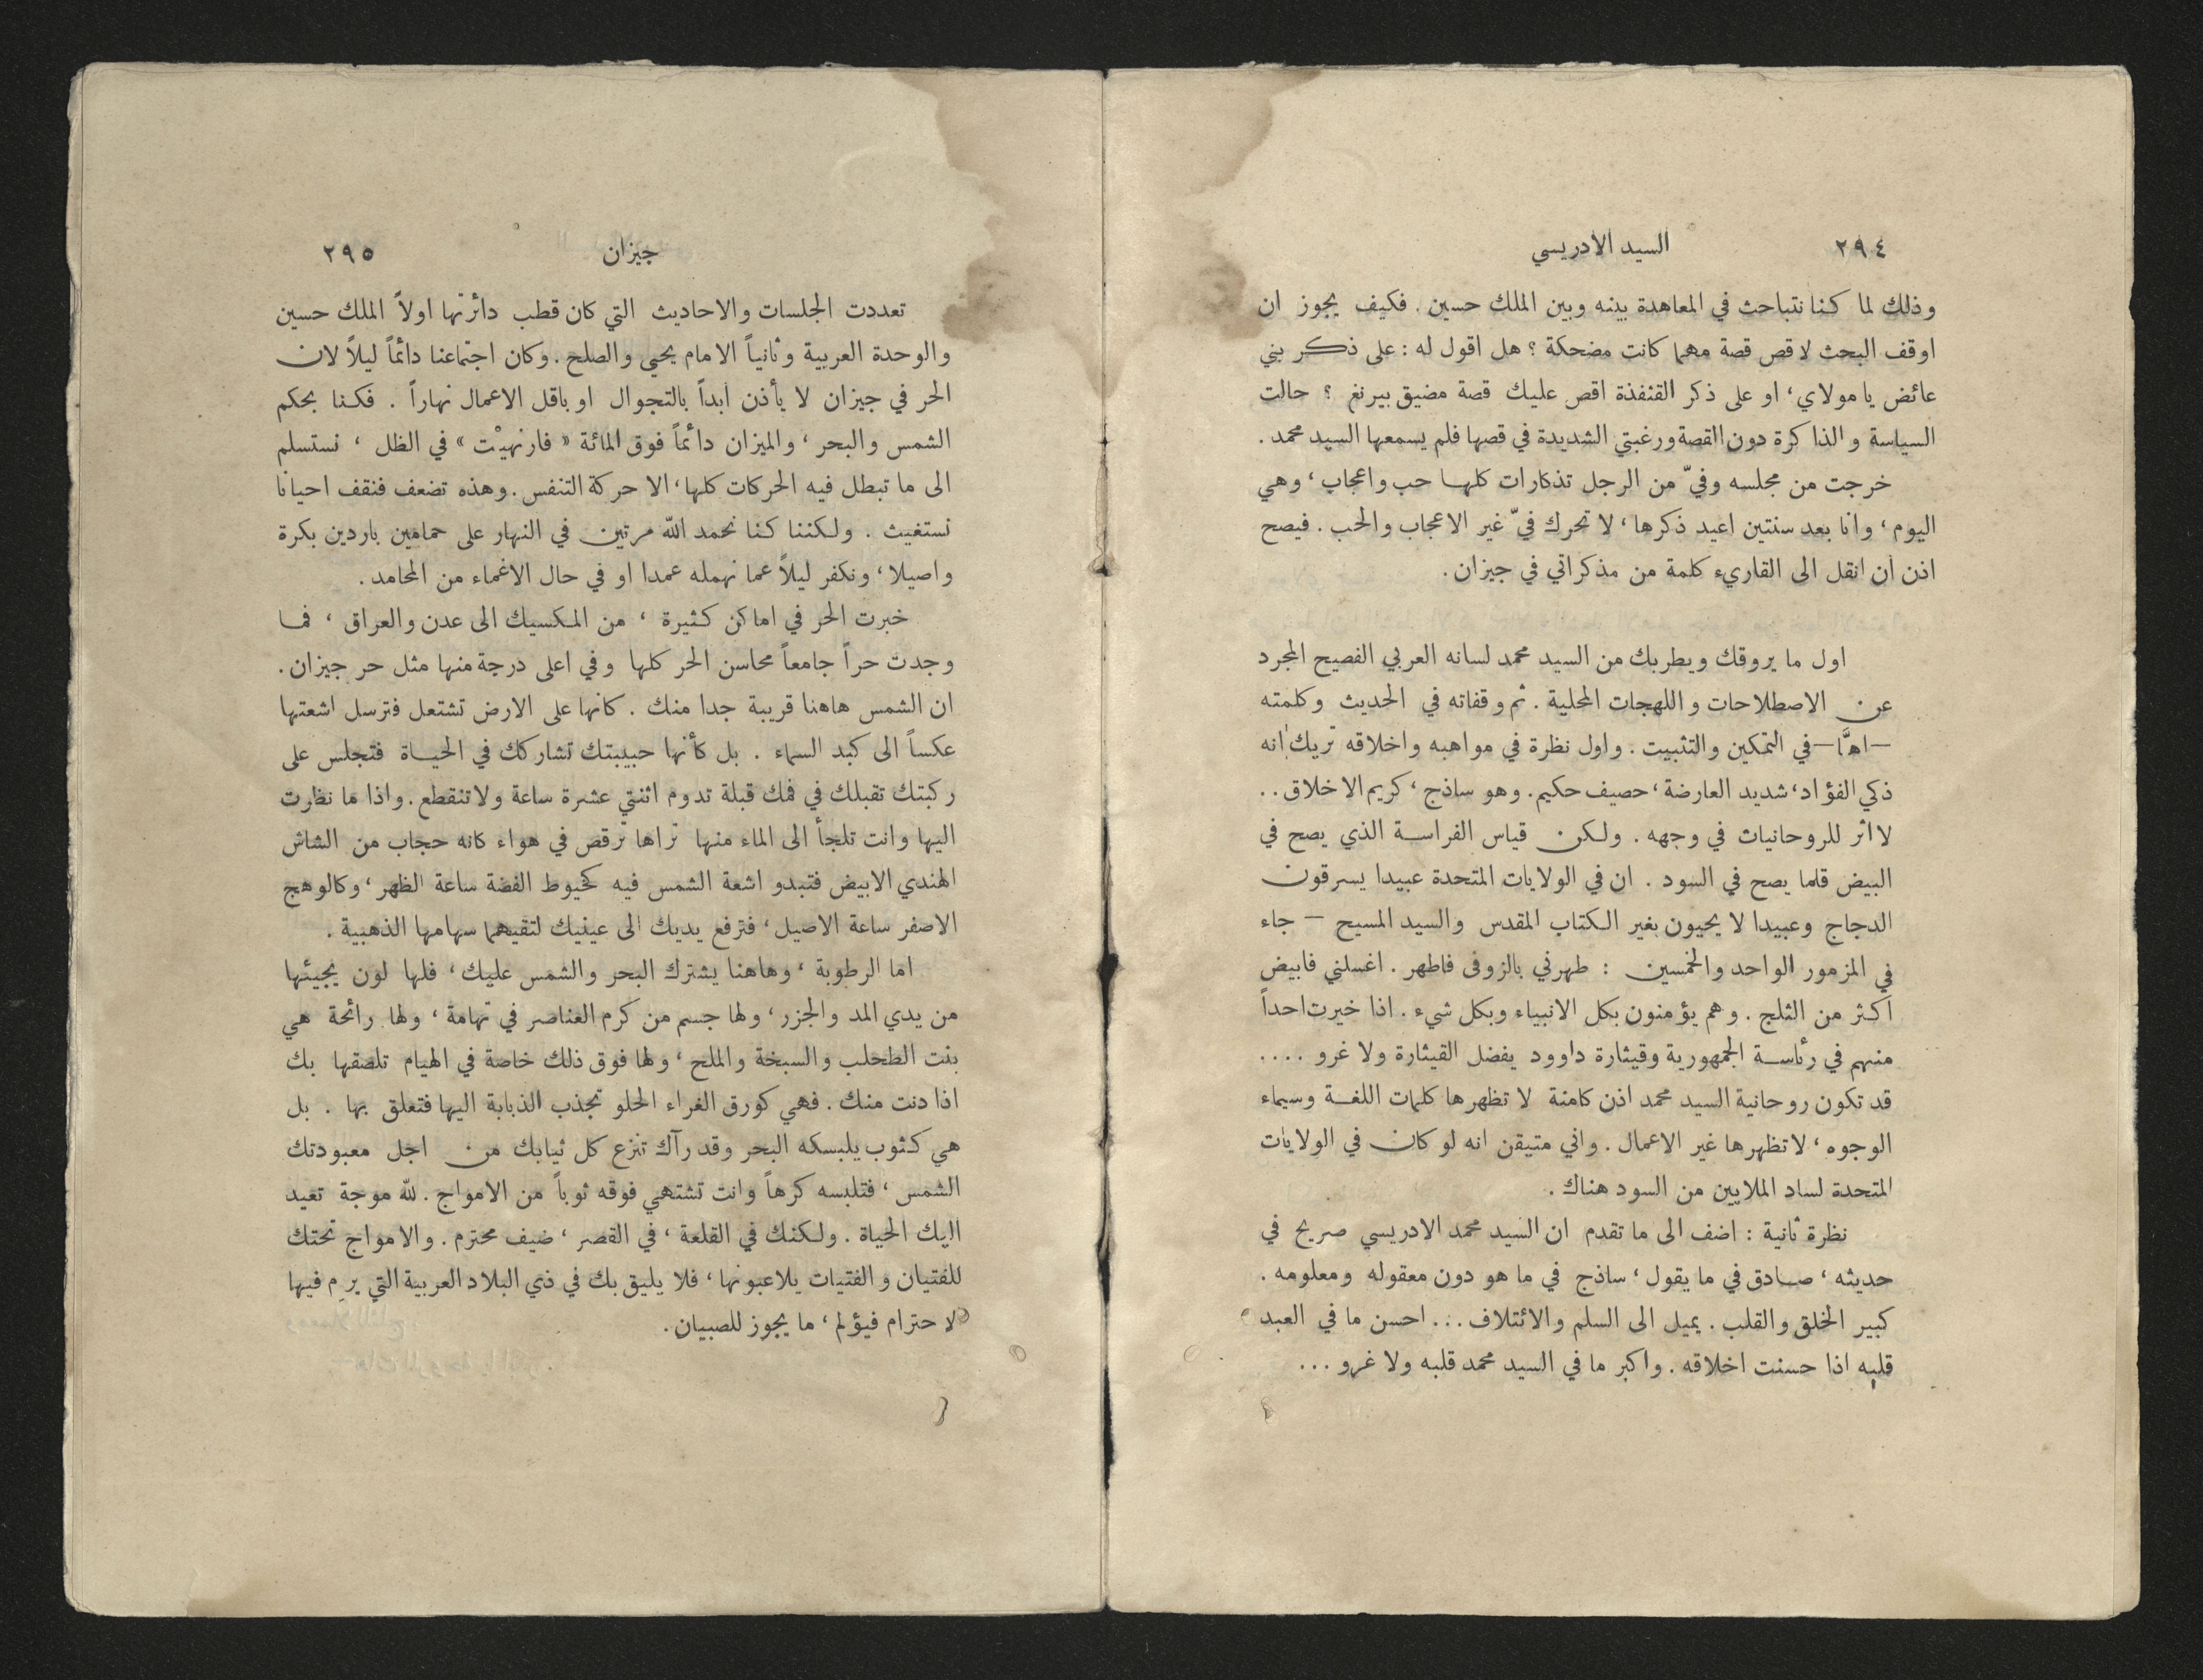 ٢٩٤ السيد الادريسي
وذلك لما كنا نتباحث في المعاهدة بينه وبين الملك حسين . فكيف يجوز ان
اوقف البحث لاقص قصة مهما كانت مضحكة ؟ هل اقول له : على ذكر بني
عائض يا مولاي ، او على ذكر القنفذة اقص عليك قصة مضيق بيرنغ ؟ حالت
السياسة والذاكرة دون القصة ورغبتي الشديدة في قصها فلم يسمعها السيد محمد .
خرجت من مجلسه وفيّ من الرجل تذكارات كلها حب واعجاب ، وهي
اليوم ، وانا بعد سنتين اعيد ذكرها ، لا تحرك فيّ غير الاعجاب والحب . فيصح
اذن ان انقل الى القاريء كلمة من مذكراتي في جيزان .
اول ما يروقك ويطربك من السيد محمد لسانه العربي الفصيح المجرد
عن الاصطلاحات واللهجات المحلية . ثم وقفاته في الحديث وكلمته
— اهَّا — في التمكين والتثبيت . واول نظرة في مواهبه واخلاقه تريك انه
ذكي الفؤاد ، شديد العارضة ، حصيف حكيم . وهو ساذج ، كريم الاخلاق . .
لا اثر للروحانيات في وجهه . ولكن قياس الفراسة الذي يصح في
البيض قلما يصح في السود . ان في الولايات المتحدة عبيدا يسرقون
الدجاج وعبيدا لا يحيون بغير الكتاب المقدس والسيد المسيح — جاء
في المزمور الواحد والخمسين : طهرني بالزوفى فاطهر . اغسلني فابيض
اكثر من الثلج . وهم يؤمنون بكل الانبياء وبكل شيء . اذا خيرت احداً
منهم في رئاسة الجمهورية وقيثارة داوود يفضل القيثارة ولا غرو ....
قد تكون روحانية السيد محمد اذن كامنة لا تظهرها كلمات اللغة وسيماء
الوجوه ، لا تظهرها غير الاعمال . واني متيقن انه لو كان في الولايات
المتحدة لساد الملايين من السود هناك .
نظرة ثانية : اضف الى ما تقدم ان السيد محمد الادريسي صريح في
حديثه ، صادق في ما يقول ، ساذج في ما هو دون معقوله ومعلومه .
كبير الخلق والقلب . يميل الى السلم والائتلاف ... احسن ما في العبد
قلبه اذا حسنت اخلاقه . واكبر ما في السيد محمد قلبه ولا غرو ...
جيزان ٢٩٥
تعددت الجلسات والاحاديث التي كان قطب دائرتها اولاً الملك حسين
والوحدة العربية وثانياً الامام يحيى والصلح . وكان اجتماعنا دائماً ليلاً لان
الحر في جيزان لا يأذن ابداً بالتجوال او باقل الاعمال نهاراً . فكنا بحكم
الشمس والبحر ، والميزان دائماً فوق المائة « فارنهيْت » في الظل ، نستسلم
الى ما تبطل فيه الحركات كلها ، الا حركة التنفس . وهذه تضعف فنقف احيانا
نستغيث . ولكننا كنا نحمد الله مرتين في النهار على حمامين باردين بكرة
واصيلا ، ونكفر ليلاً عما نهمله عمدا او في حال الاغماء من المحامد .
خبرت الحر في اماكن كثيرة ، من المكسيك الى عدن والعراق ، فما
وجدت حراً جامعاً محاسن الحر كلها وفي اعلى درجة منها مثل حر جيزان .
ان الشمس هاهنا قريبة جدا منك . كانها على الارض تشتعل فترسل اشعتها
عكساً الى كبد السماء . بل كأنها حبيبتك تشاركك في الحياة فتجلس على
ركبتك تقبلك في فمك قبلة تدوم اثنتي عشرة ساعة ولا تنقطع . واذا ما نظرت
اليها وانت تلجأ الى الماء منها تراها ترقص في هواء كانه حجاب من الشاش
الهندي الابيض فتبدو اشعة الشمس فيه كخيوط الفضة ساعة الظهر ، وكالوهج
الاصفر ساعة الاصيل ، فترفع يديك الى عينيك لتقيهما سهامها الذهبية .
اما الرطوبة ، وهاهنا يشترك البحر والشمس عليك ، فلها لون يجيئها
من يدي المد والجزر ، ولها جسم من كرم العناصر في تهامة ، ولها رائحة هي
بنت الطحلب والسبخة والملح ، ولها فوق ذلك خاصة في الهيام تلصقها بك
اذا دنت منك . فهي كورق الغراء الحلو تجذب الذبابة اليها فتعلق بها . بل
هي كثوب يلبسكه البحر وقد رآك تنزع كل ثيابك من اجل معبودتك
الشمس ، فتلبسه كرهاً وانت تشتهي فوقه ثوباً من الامواج . لله موجة تعيد
اليك الحياة . ولكنك في القلعة ، في القصر ، ضيف محترم . والامواج تحتك
للفتيان والفتيات يلاعبونها ، فلا يليق بك في ذي البلاد العربية التي يرم فيها
لاحترام فيؤلم ، ما يجوز للصبيان .